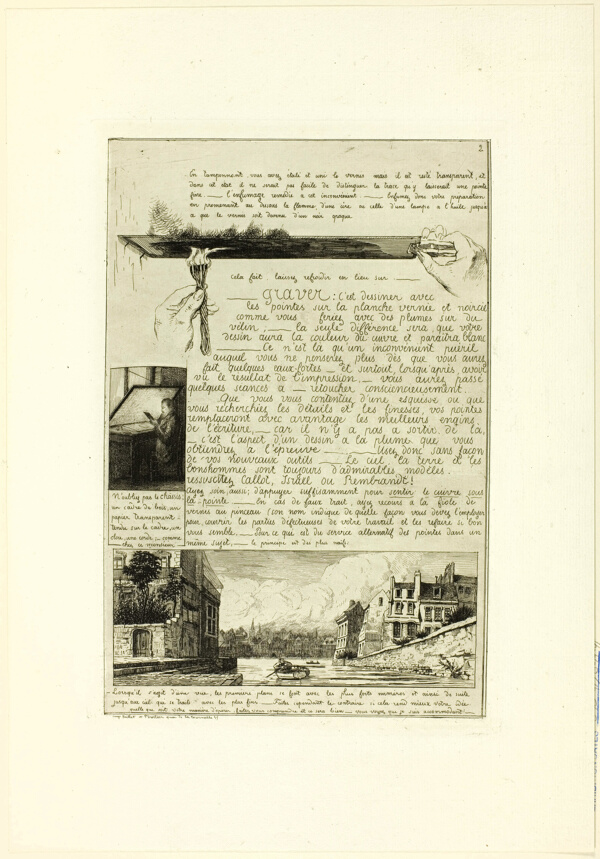 2
En tamponnant vous avez étalé et uni le vernis mais il est resté transparent, et
dans cet état il ne serait pas facile de distinguer la trace qu'y laisserait une pointe
fine — l'enfumage remédie à cet inconvénient: — Enfumez donc votre préparation
en promenant au dessous la flamme d'une cire ou celle d'une lampe à l'huile jusqu'à
ce que le vernis soit devenu d'un noir opaque
cela fait: laissez refroidir en lieu sur —
— graver: c'est dessiner avec
les pointes sur la planche vernie et noircie
comme vous feriez avec des plumes sur du
vélin; — la seule différence sera que votre
dessin aura la couleur du cuivre et paraîtra blanc
— Ce n'est là qu'un inconvénient puéril
auquel vous ne penserez plus dès que vous aurez
fait quelques eaux-fortes — et surtout lorsqu'après avoir
vu le résultat de l'impression, — vous aurez passé
quelques séances à — retoucher consciencieusement.
Que vous vous contentiez d'une esquisse ou que
vous recherchiez les détails et les finesses, vos pointes
remplaceront avec avantage les meilleurs engins
de l'écriture, — car il n'y a pas à sortir de là,
— c'est l'aspect d'un dessin à la plume que vous
obtiendrez à l'épreuve — Usez donc sans façon
de vos nouveaux outils — Le ciel la terre et les
bonshommes sont toujours d'admirables modèles:
ressuscitez Callot, Israël ou Rembrandt!
Ayez soin, aussi, d'appuyer suffisamment pour sentir le cuivre sous
la pointe — En cas de faux trait, ayez recours à la fiole de
vernis au pinceau (son nom indique de quelle façon vous devez l'employer
pour couvrir les parties défectueuses de votre travail et les refaire si bon
vous semble. — Pour ce qui est du service alternatif des pointes dans un
même sujet, — le principe est des plus naïfs:
N'oubliez pas le chassis
un cadre de bois, un
papier transparent
tendu sur le cadre, un
clou, une corde — comme
chez ce monsieur
Lorsqu'il s'agit d'une vue, les premiers plans se font avec les plus fortes numéros et ainsi de suite
jusqu'au ciel qui se traite avec les plus fins — Faites cependant le contraire si cela rend mieux votre idée
quelle que soit votre manière d'opérer faites vous comprendre et ce sera bien — vous voyez que je suis accommodant —